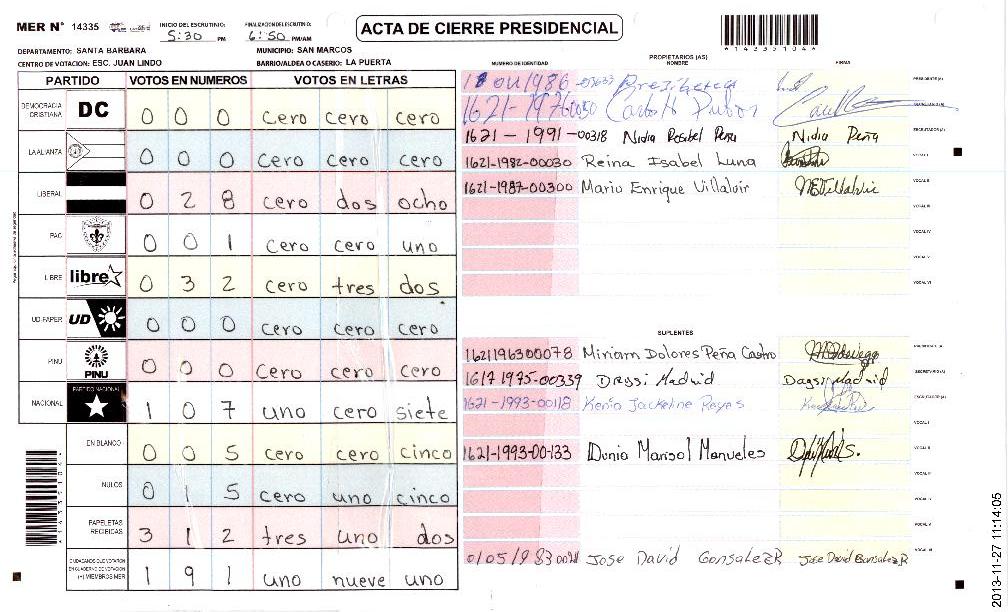 MER Nº 14335
INICIO DEL ESCRUTINIO: 5:30 PM
FINALIZACION DEL ESCRUTINIO: 6:50 PM/AM
ACTA DE CIERRE PRESIDENCIAL
DEPARTAMENTO: SANTA BARBARA
MUNICIPIO: SAN MARCOS
CENTRO DE VOTACION: ESC. JUAN LINDO
BARRIO/ALDEA O CASERIO: LA PUERTA
PARTIDO VOTOS EN NUMEROS VOTOS EN LETRAS
DEMOCRACIA CRISTIANA DC 0 0 0 cero cero cero
LA ALIANZA 0 0 0 cero cero cero
LIBERAL 0 2 8 cero dos ocho
PAC 0 0 1 cero cero uno
LIBRE libre 0 3 2 cero tres dos
UD-FAPER UD 0 0 0 cero cero cero
PINU PINU 0 0 0 cero cero cero
NACIONAL PARTIDO NACIONAL 1 0 7 uno cero siete
EN BLANCO 0 0 5 cero cero cinco
NULOS 0 1 5 cero uno cinco
PAPELETAS RECIBIDAS 3 1 2 tres uno dos
CIUDADANOS QUE VOTARON EN CUADERNO DE VOTACION (+) MIEMBROS MER 1 9 1 uno nueve uno
PROPIETARIOS (AS)
NUMERO DE IDENTIDAD NOMBRE FIRMA
PRESIDENTE (A)
1621-1991-00318 Nidia Rosibel Peña Nidia Peña ESCRUTADOR (A)
1621-1982-00030 Reina Isabel Luna VOCAL I
1621-1987-00300 Mario Enrique Villalvir VOCAL II
VOCAL III
VOCAL IV
VOCAL V
VOCAL VI
SUPLENTES
1621196300078 Miriam Dolores Peña Castro
1617 1975-00339 Daysi Madrid Daysi Madrid SECRETARIO (A)
1621-1993-00118 Kenia Jackeline Reyes ESCRUTADOR (A)
VOCAL I
1621-1993-00-133 Dunia Marisol Manueles VOCAL II
Jose David Gonsalez R Jose David Gonsalez R
2013-11-27 11:14:05